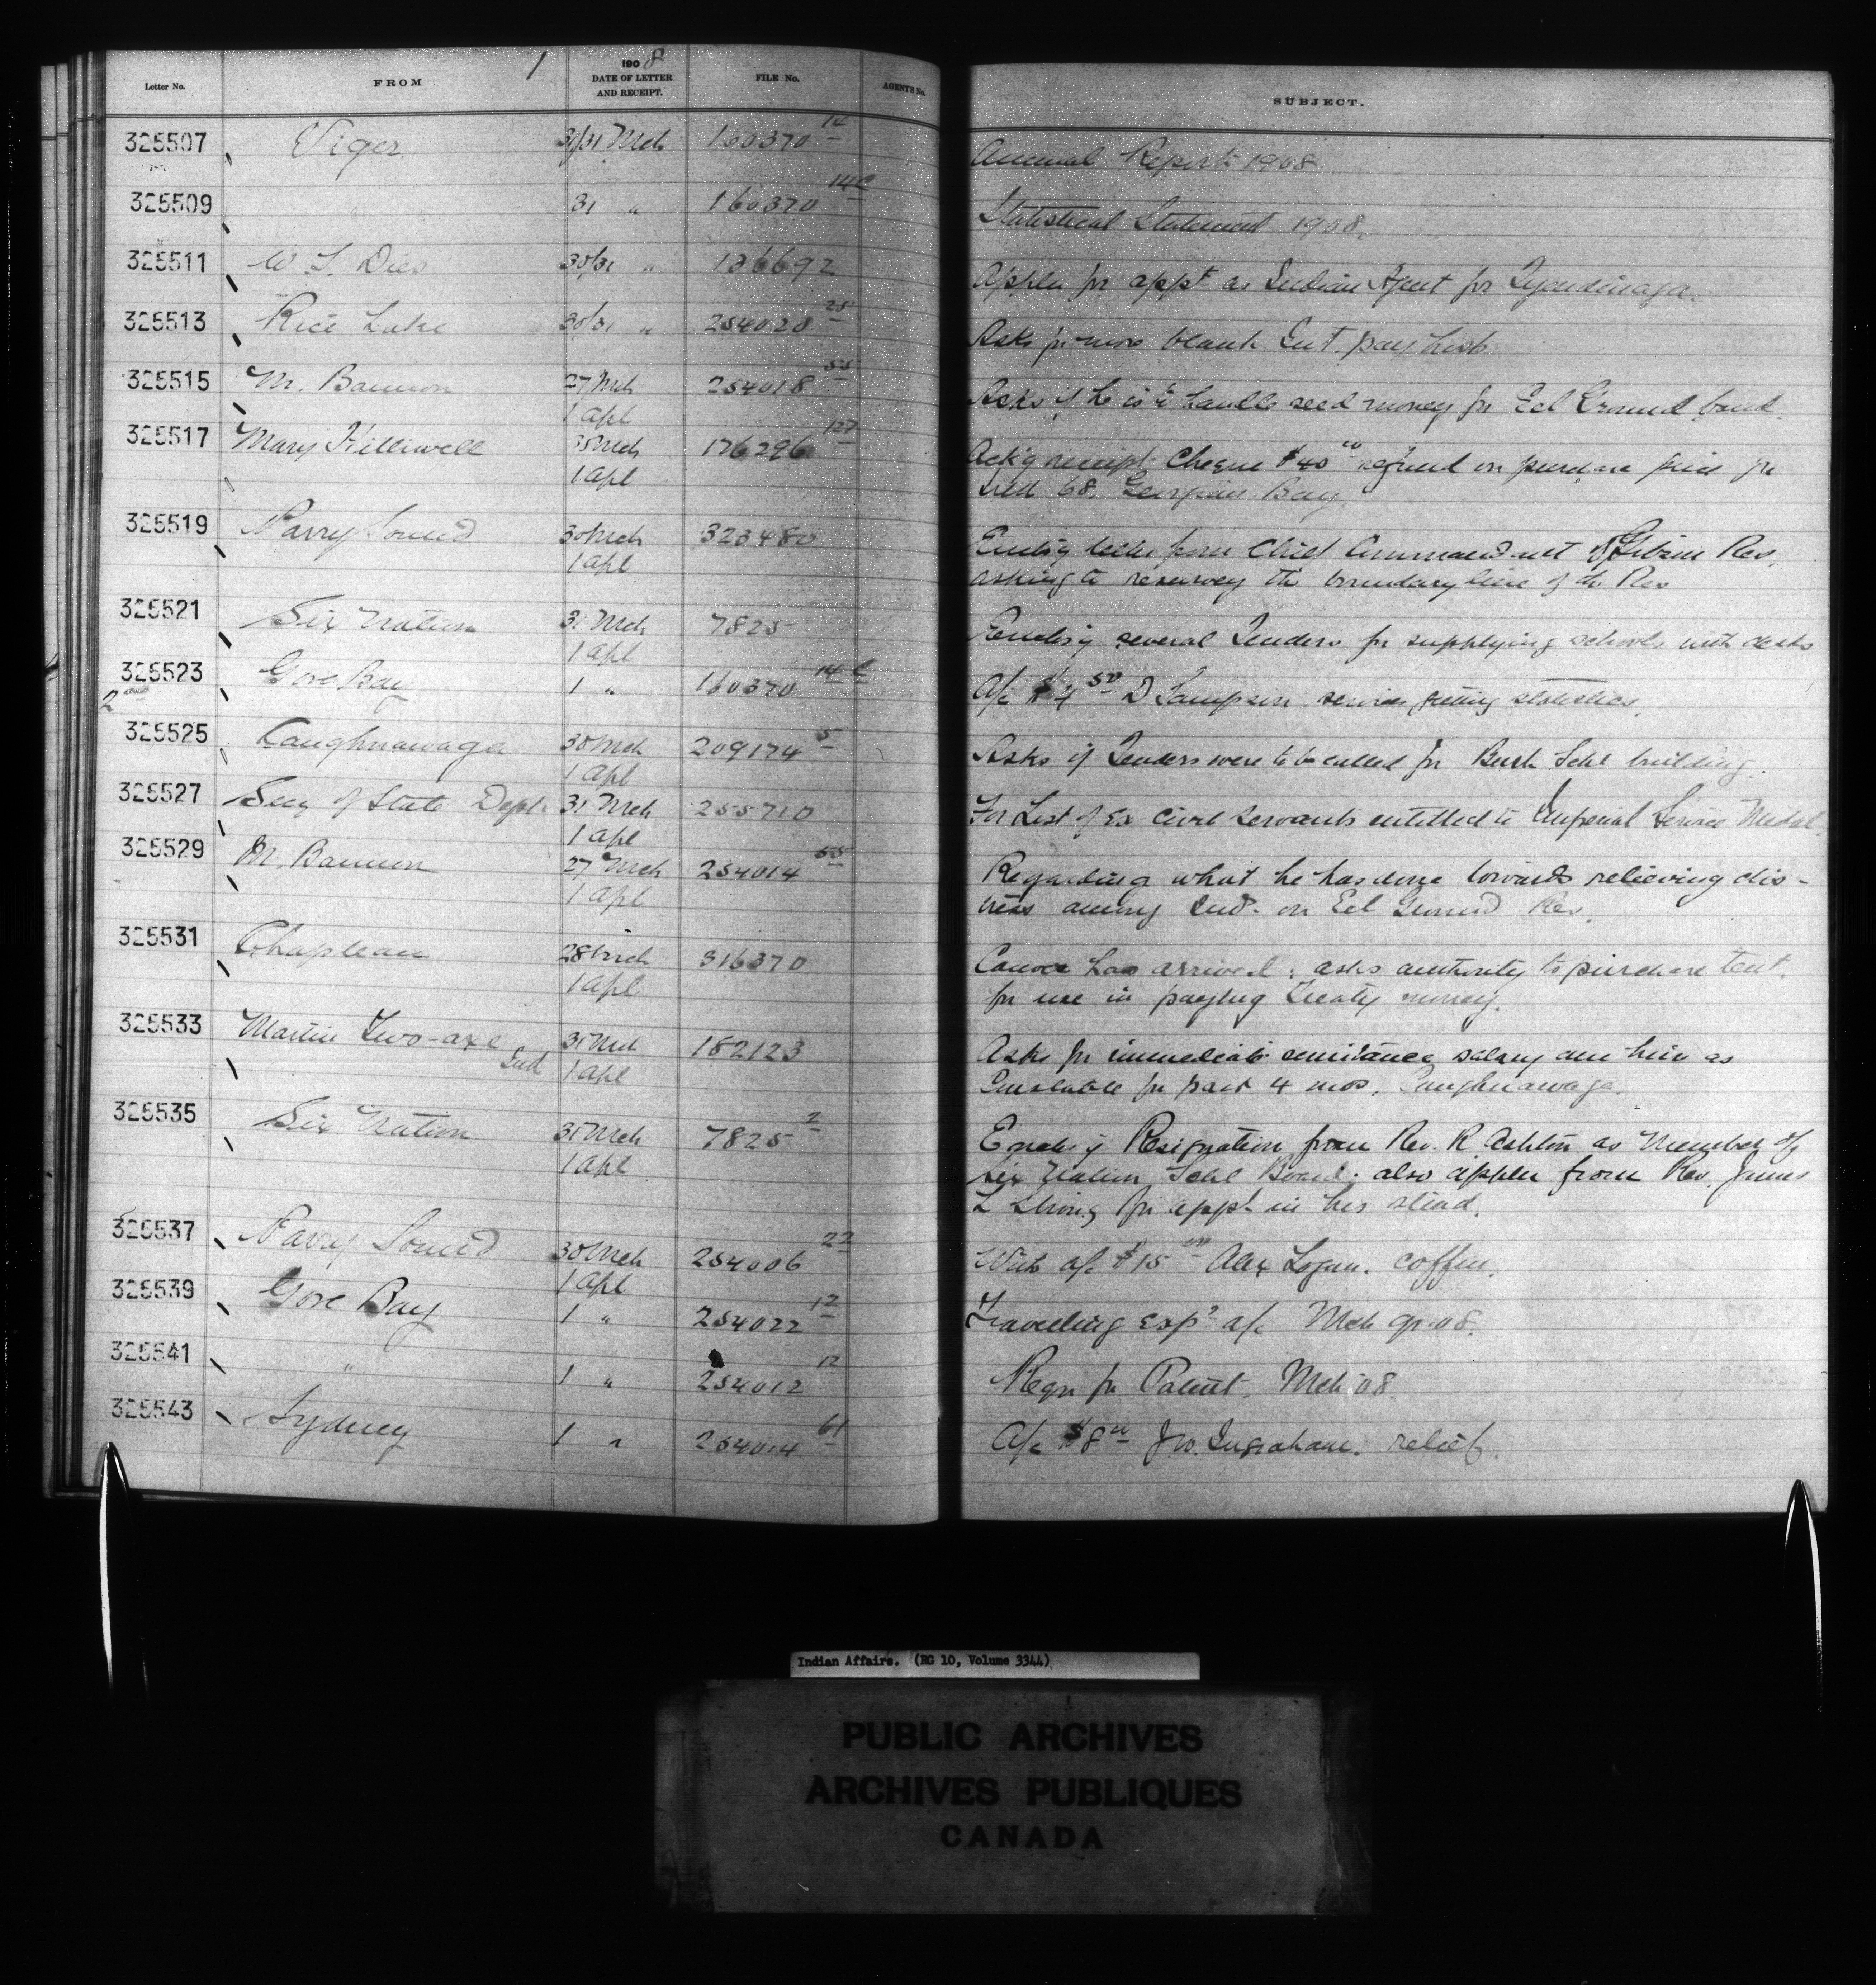 1
Letter No. FROM 1908 DATE OF LETTER AND RECEIPT. FILE No. AGENT'S No. SUBJECT.
325507 Viger 31/31 Mch 160370 14 Annual Report 1908
325509 " 31 " 160370 14C Statistical Statement 1908.
325511 W S. Dies 30/31 " 136692 Appln for appt as Indian Agent for Tyendinaga.
325513 Rice Lake 30/31 " 254020 Asks for more blank Int. pay lists
325515 M. Bannon 27 Mch 254018 55 Asks if he is to handle seed money for Eel Ground band.
1 Apl
325517 Mary Hilliwell Mch 176296 127 Ack'g receipt Cheque $40 00 refund on purchase price for
1 Apl
Isld 68, Georgian Bay.
325519 Parry Sound 30 Mch 323480 Enclos'g letter from Chief Commandant Gibson Res.
1 Apl asking to resurvey the boundary line of the Res
325521 Six Nation 31 Mch 7825 Enclos'g several Tenders for supplying schools with desks
1 Apl
325523 Gore Bay 1 " 160370 14 C A/c $4 50 D Sampson services getting statistics.
2nd
325525 Caughnawaga 30 Mch 209174 5 Asks if Tenders were to be called for Bush Schl building.
1 Apl
325527 Secy of State Dept. 31 Mch 255710 For List of Ex Civil Servants entitled to Imperial Service Medal.
1 Apl
325529 M. Bannon 27 Mch 254014 55 Regarding what he has done towards relieving dis-
1 Apl tress among Ind. on Eel Ground Res.
325531 Chapleau 28 Mch 316370 Canoe has arrived; asks authority to purchase tent.
1 Apl for use in paying Treaty money.
325533 Martin Two-axe 31 Mch 182123 Asks for immediate remittance salary due him as
Ind 1 Apl Constable for past 4 mos. Caughnawaga.
325535 Six Nation 31 Mch 7825 2 Enclos'g Resignation from Rev. R. Ashton as Member of
1 Apl Six Nation Schl Board; also appln from Rev. James
L Strong for appt in his stead.
325537 Parry Sound 30 Mch 254006 22 With a/c $15 00 Alex Logan. coffin.
1 Apl
325539 Gore Bay 1 " 254022 12 Travelling exps a/c Mch qr 08.
325541 " 1 " 254012 12 Reqn for Mch '08.
325543 Sydney 1 " 254014 61 A/c $8 00 J W. Ingraham. relief.
Indian Affairs. (RG 10, Volume 3344)
PUBLIC ARCHIVES
ARCHIVES PUBLIQUES
CANADA